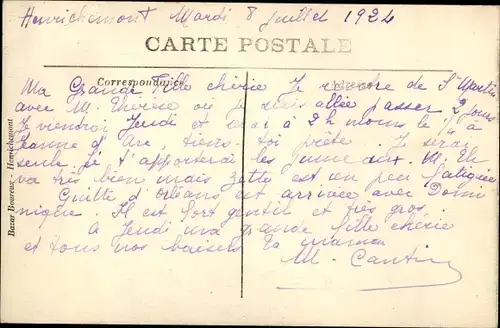 Henrichemont Mardi 8 Juillet 1924
CARTE POSTALE
Correspondance
Ma Grande Fille chérie Je rentre de St Martin
avec M. Thérèse où je suis allée passer 2 jours
Je viendrai Jeudi et serai à 2h moins le ¼ à
Jeanne d'Arc, tiens-toi prête. Je serai
seule je t'apporterai les
va très bien mais Zette est un peu fatiguée
Guitte d'Orléans est arrivée avec Domi
nique. Il est fort gentil et très gros.
à Jeudi ma grande fille chérie
et tous nos baisers ta maman
M. Cantin
Bazar Henrichemont